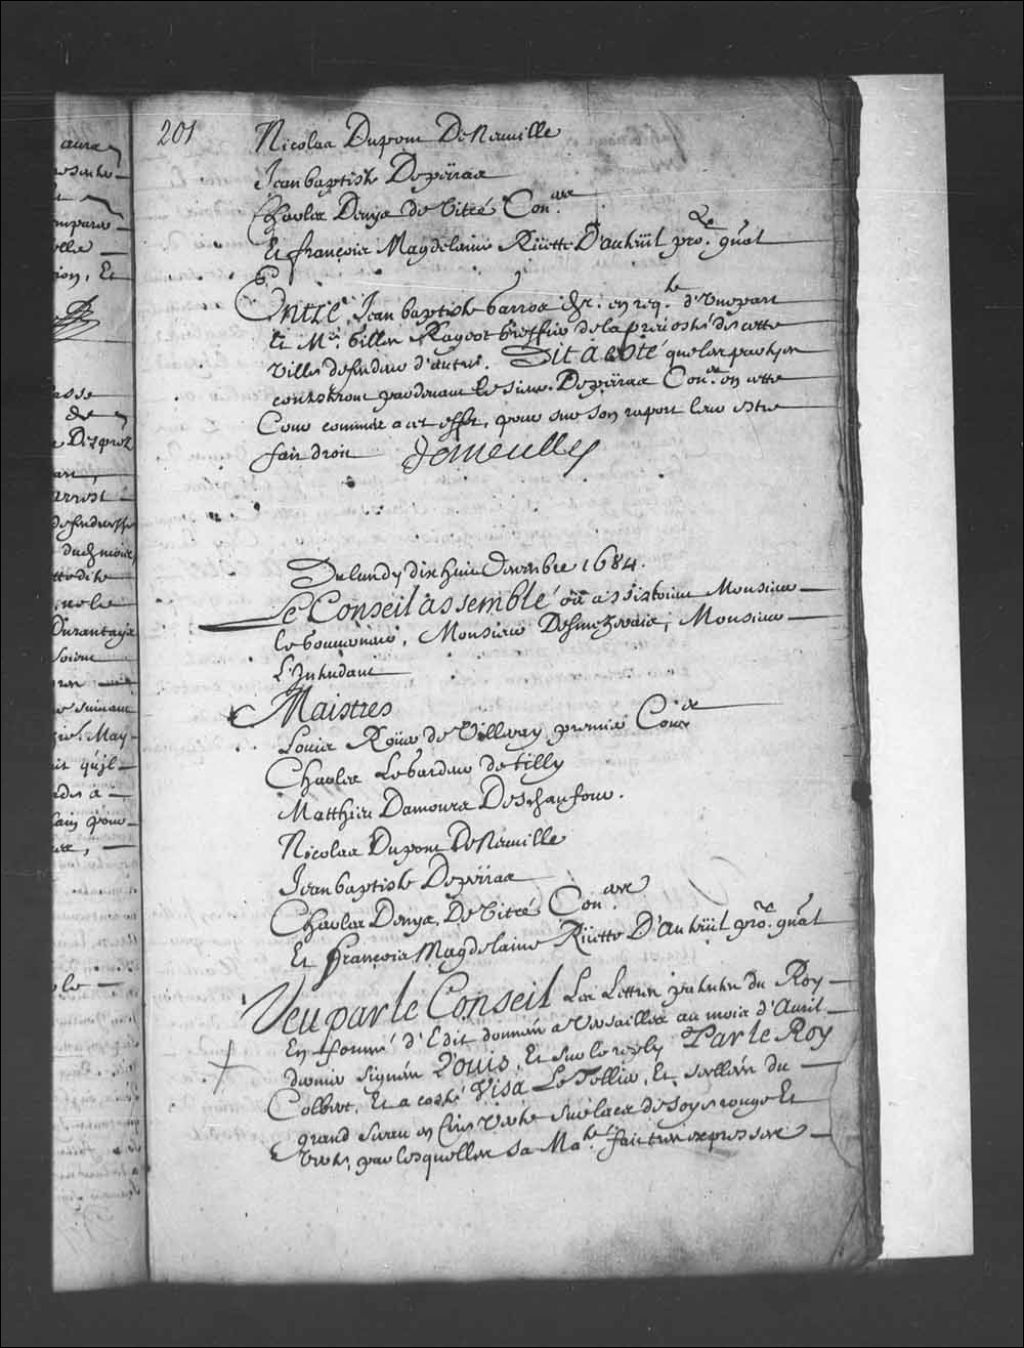 201
Nicolas Dupont De Neuuille
Jean baptiste Depeiras
Charles Denys de Vitré Con.ers
Et françois Magdelaine Rüette D'Auteüil pro.r gñal
Entre Jean baptiste Garros &c. en req.te d'Vne part
Et M.e Gilles Rageot Greffier de la preuosté de cette
Ville defendeur d'autre. Dit a esté que les parties
contesteront pardeuant le sieur Depeiras Con.er en cette
Cour commis a cet effet, pour sur son raport leur estre
fait droit Demeulle
Du lundy dix huit Decembre 1684.
Le Conseil assemblé où assistoient Monsieur
le Gouuerneur, Monsieur Monsieur
L'Intendant
Maistres
Louis Roüer de Villeray premier Con.er
Charles Legardeur de Tilly
Matthieu Damours Deschaufour.
Nicolas Dupont De Neuuille
Jean baptiste Depeiras
Charles Denys De Vitré Con.ers
Et françois Magdelaine Rüette D'Auteüil pro.r gñal
Veu par le Conseil Les Lettres patentes du Roy
En forme d'Edit données a Versailles au mois d'Auril
dernier signées Louis, Et sur le reply Par le Roy
Colbert, Et a costé Visa Le Tellier, Et scellées du
grand sceau en Cire Verte sur lacs de soye rouge Et
Verte, par lesquelles sa Ma.té fait tres expresses
aura
mpara
elle
ion, Et
de
Desprez
arrest
Durantaye
suiuant
May
quil